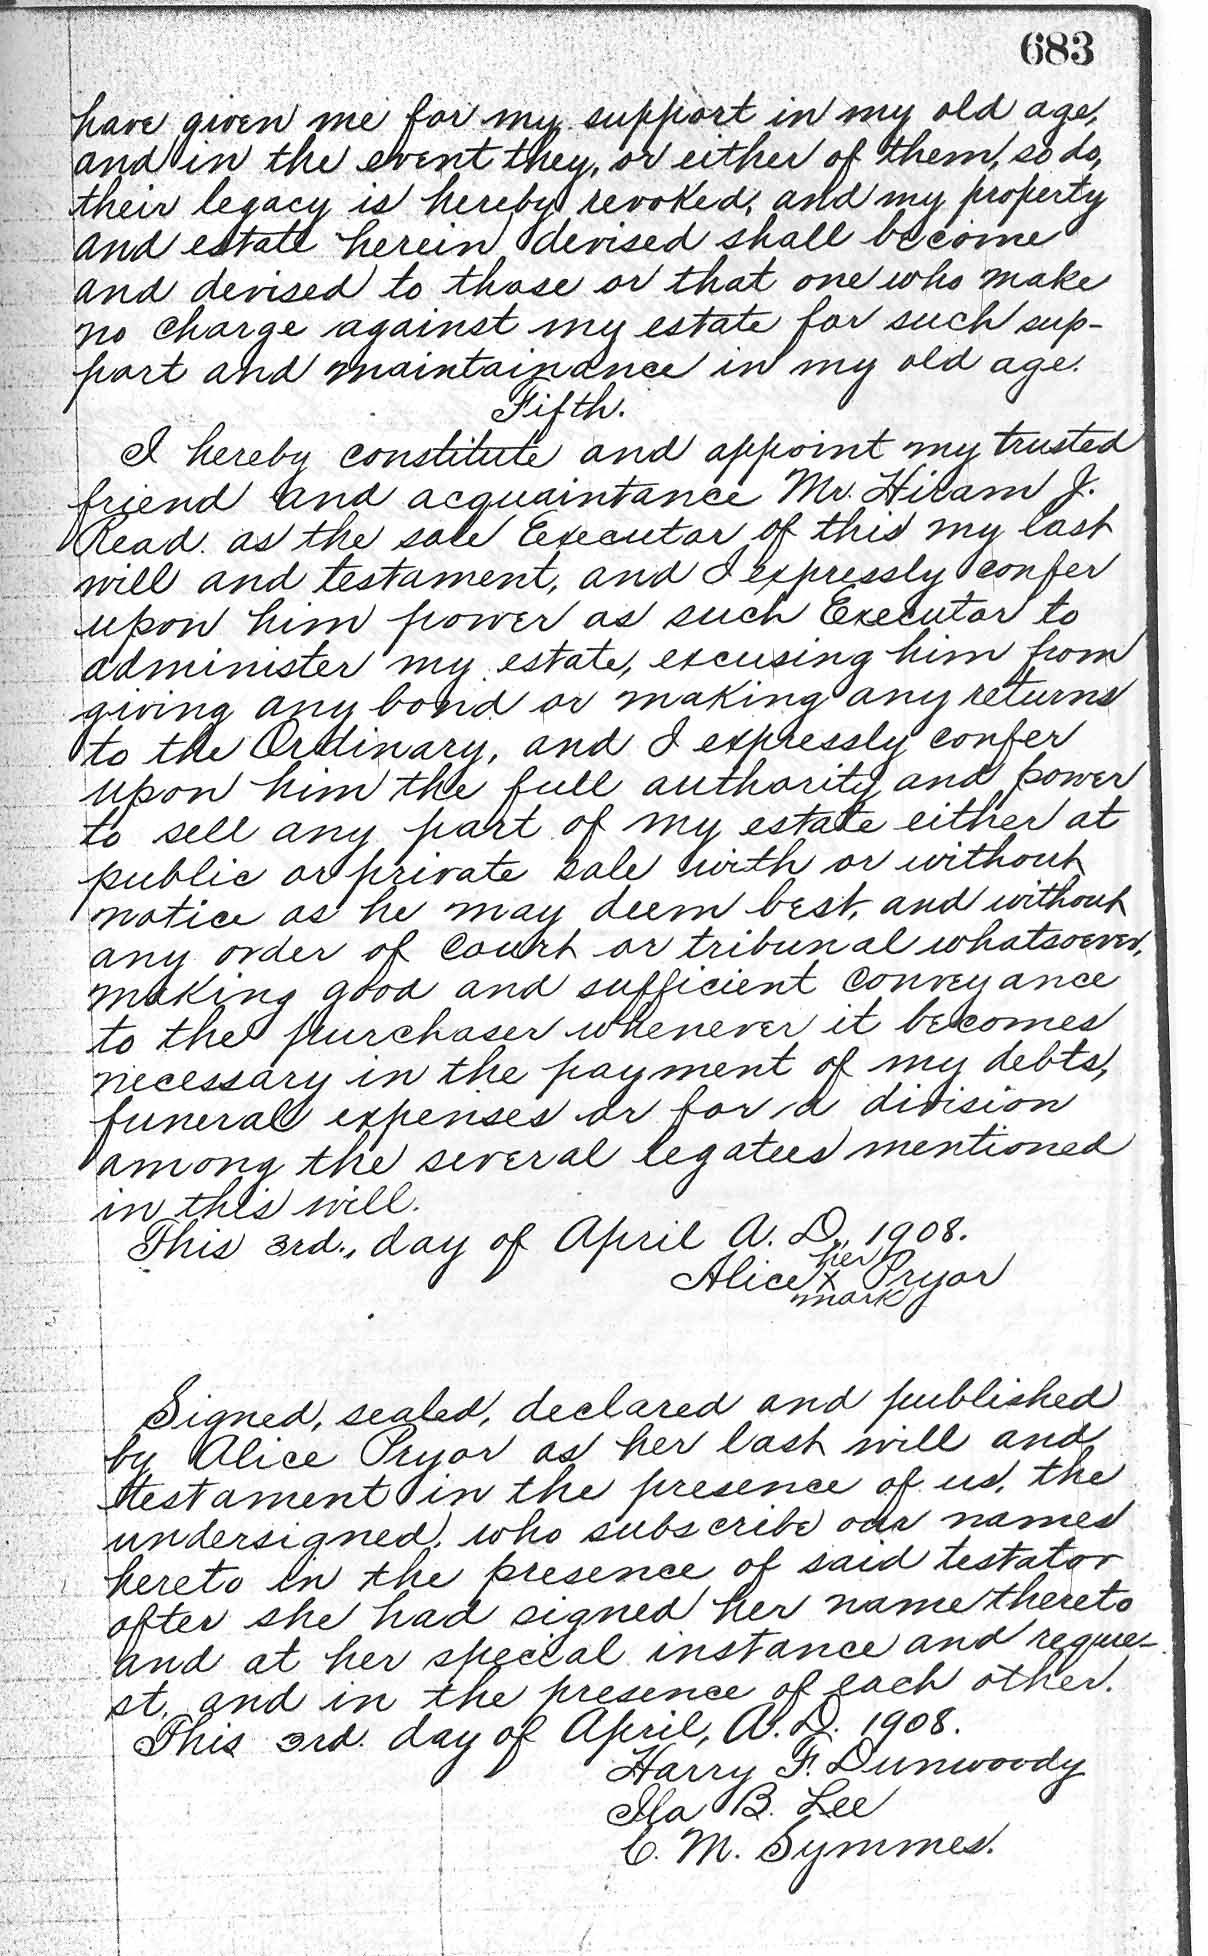 683
have given me for my support in my old age,
and in the event they, or either of them, so do,
their legacy is hereby revoked, and my property
and estate herein devised shall become
and devised to those or that one who make
no charge against my estate for such sup-
port and maintainance in my old age.
Fifth.
I hereby constitute and appoint my trusted
friend and acquaintance Mr. Hiram J.
Read. as the sole Executor of this my last
will and testament, and I expressly confer
upon him power as such Executor to
administer my estate, excusing him from
giving any bond or making any returns
to the Ordinary, and I expressly confer
upon him the full authority and power
to sell any part of my estate either at
public or private sale with or without
notice as he may deem best, and without
any order of court or tribunal whatsoever,
making good and sufficient conveyance
to the purchaser whenever it becomes
necessary in the payment of my debts,
funeral expenses or for a division
among the several legatees mentioned
in this will.
This 3rd., day of April A. D., 1908.
her
Alice x Pryor
mark
Signed, sealed, declared and published
by Alice Pryor as her last will and
testament in the presence of us, the
undersigned, who subscribe our names
hereto in the presence of said testator
after she had signed her name thereto
and at her special instance and reque-
st, and in the presence of each other.
This 3rd. day of April, A. D. 1908.
Harry F. Dunwoody
Ila B. Lee
C. M. Symmes.